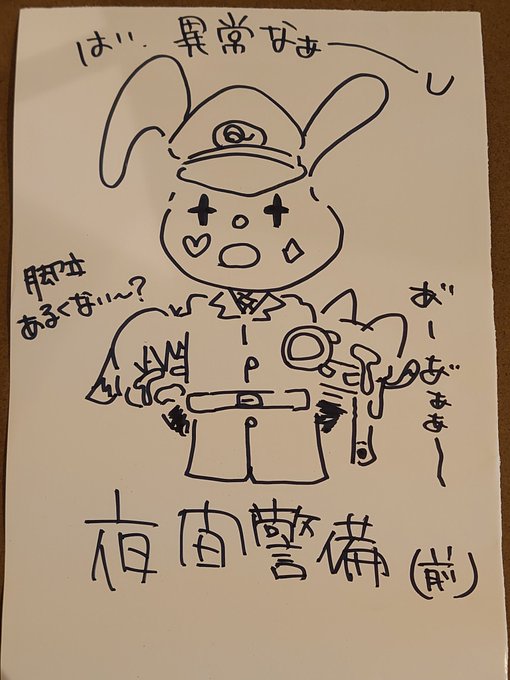 はい、異常なぁーし
脚立
あるくない〜?
あ゛ーあ゛ぁぁ〜
夜間警備
(前)